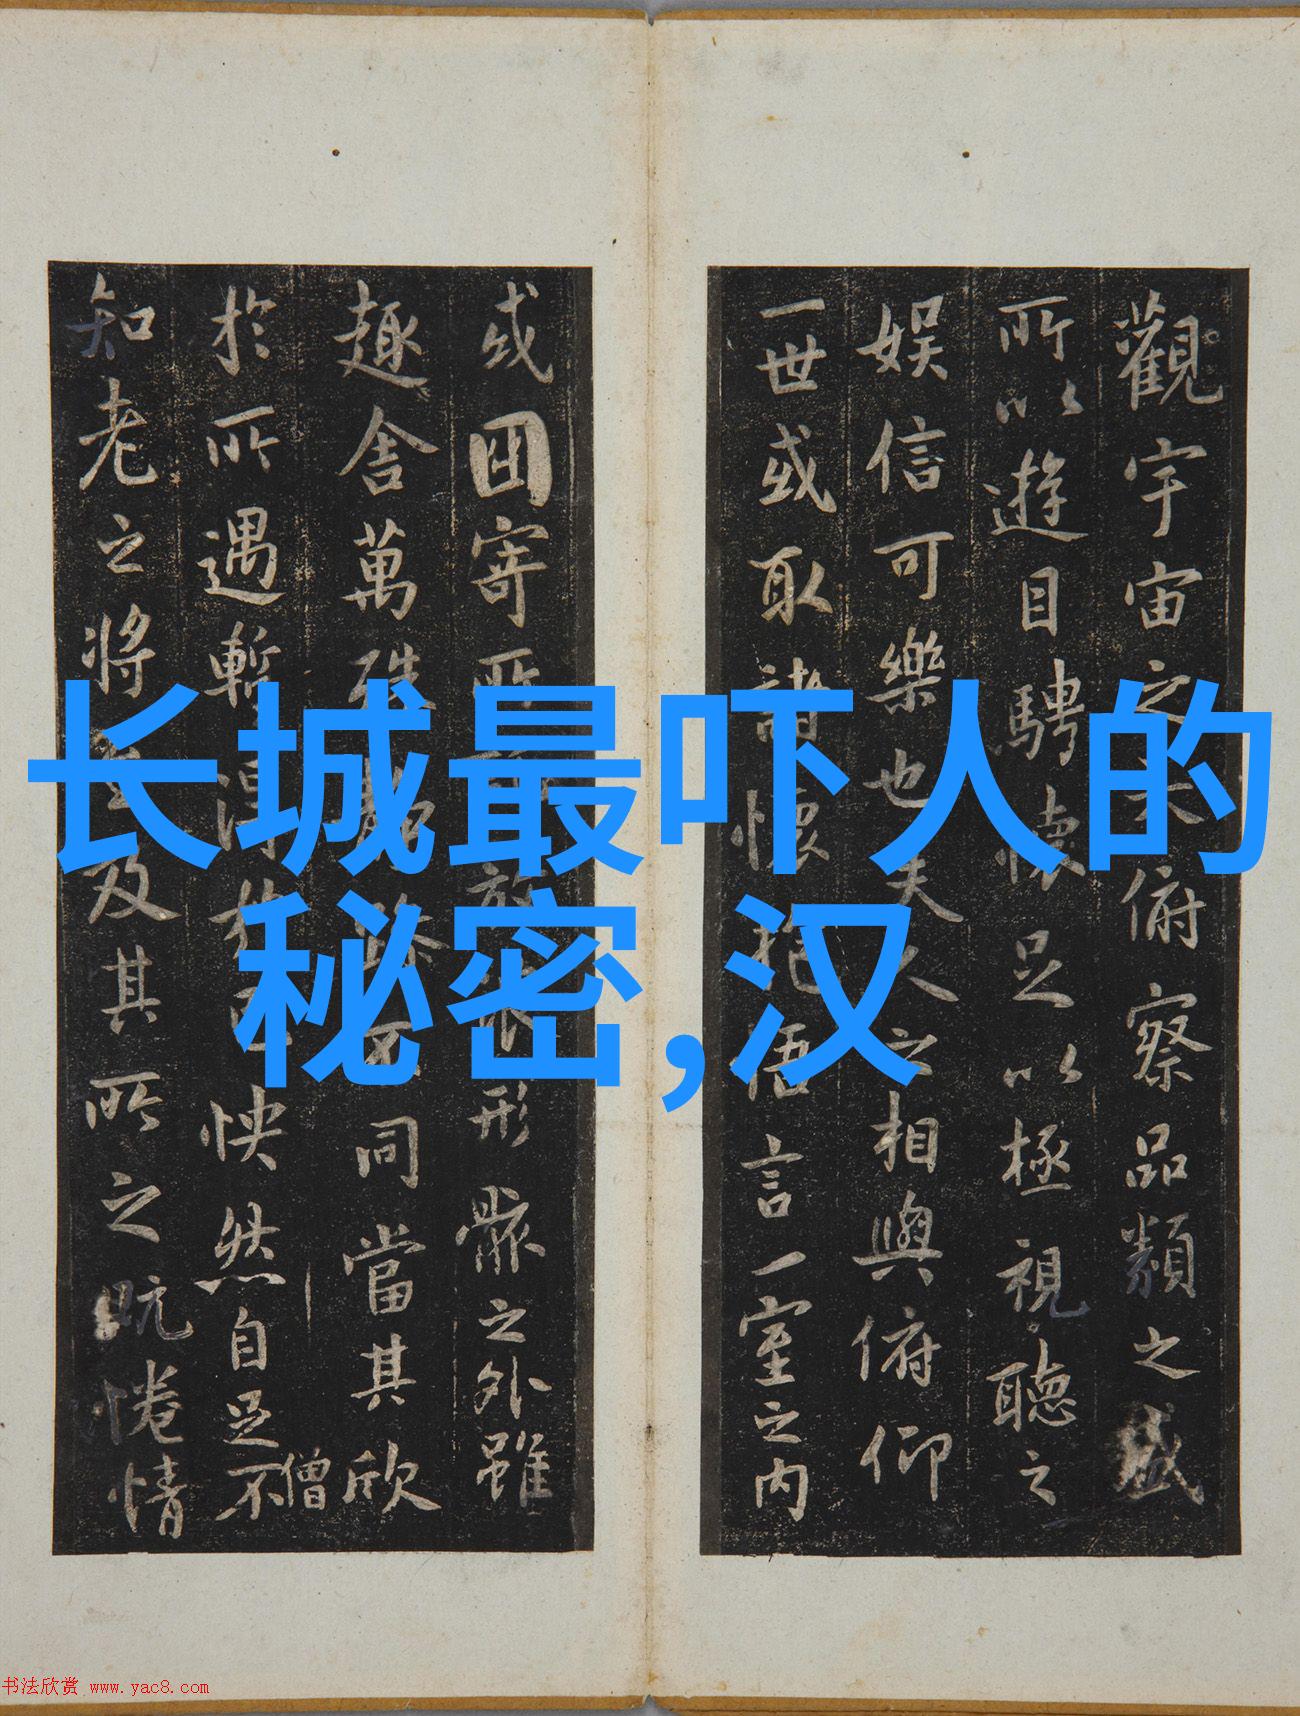 觀宇宙之大俯察品類之盛
所以遊目騁懷足以極視聽之
娱信可樂也夫人之相與俯仰
一世或取諸懷抱悟言一室之内
或因寄所託放浪形骸之外雖
趣舍萬殊静躁不同當其欣
於所遇暫得於己怏然自足不
僧
知老之將至及其所之既惓情
长城最吓人的
秘密,汉
书法欣赏 www.yac8.com